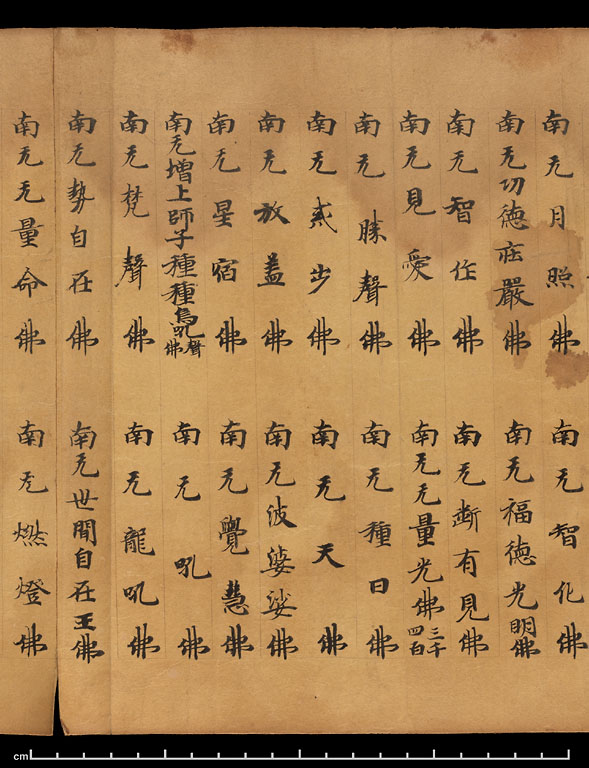 南无月照佛 南无智化佛
南无功德庄嚴佛 南无福德光明佛
南无智作佛 南无断有見佛
南无見愛佛 南无无量光佛 三千四百
南无勝聲佛 南无種日佛
南无惑步佛 南无天佛
南无放蓋佛 南无波婆娑佛
南无星宿佛 南无覺慧佛
南无增上師子種種鳥吼聲佛 南无吼佛
南无梵聲佛 南无龍吼佛
南无勢自在佛 南无世間自在王佛
南无无量命佛 南无燃燈佛
cm